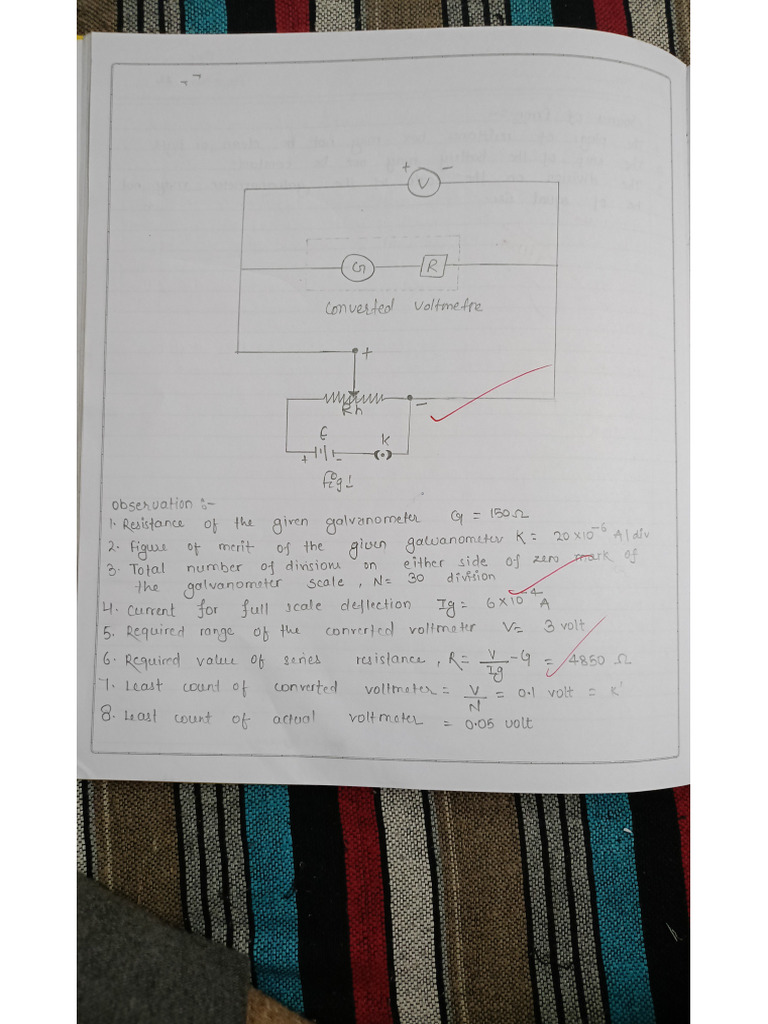 + V -
G R
Converted Voltmetre
+
Rh -
E K
+ -
fig 1
Observation :-
1. Resistance of the given galvanometer G = 150 Ω
2. Figure of merit of the given galvanometer K = 20 × 10⁻⁶ A/div
3. Total number of divisions on either side of zero mark of
the galvanometer scale, N = 30 division
4. Current for full scale deflection Ig = 6×10⁻⁴ A
5. Required range of the converted voltmeter V = 3 volt
6. Required value of series resistance, R = V/Ig - G = 4850 Ω
7. Least count of converted voltmeter = V/N = 0.1 volt = K'
8. Least count of actual voltmeter = 0.05 volt